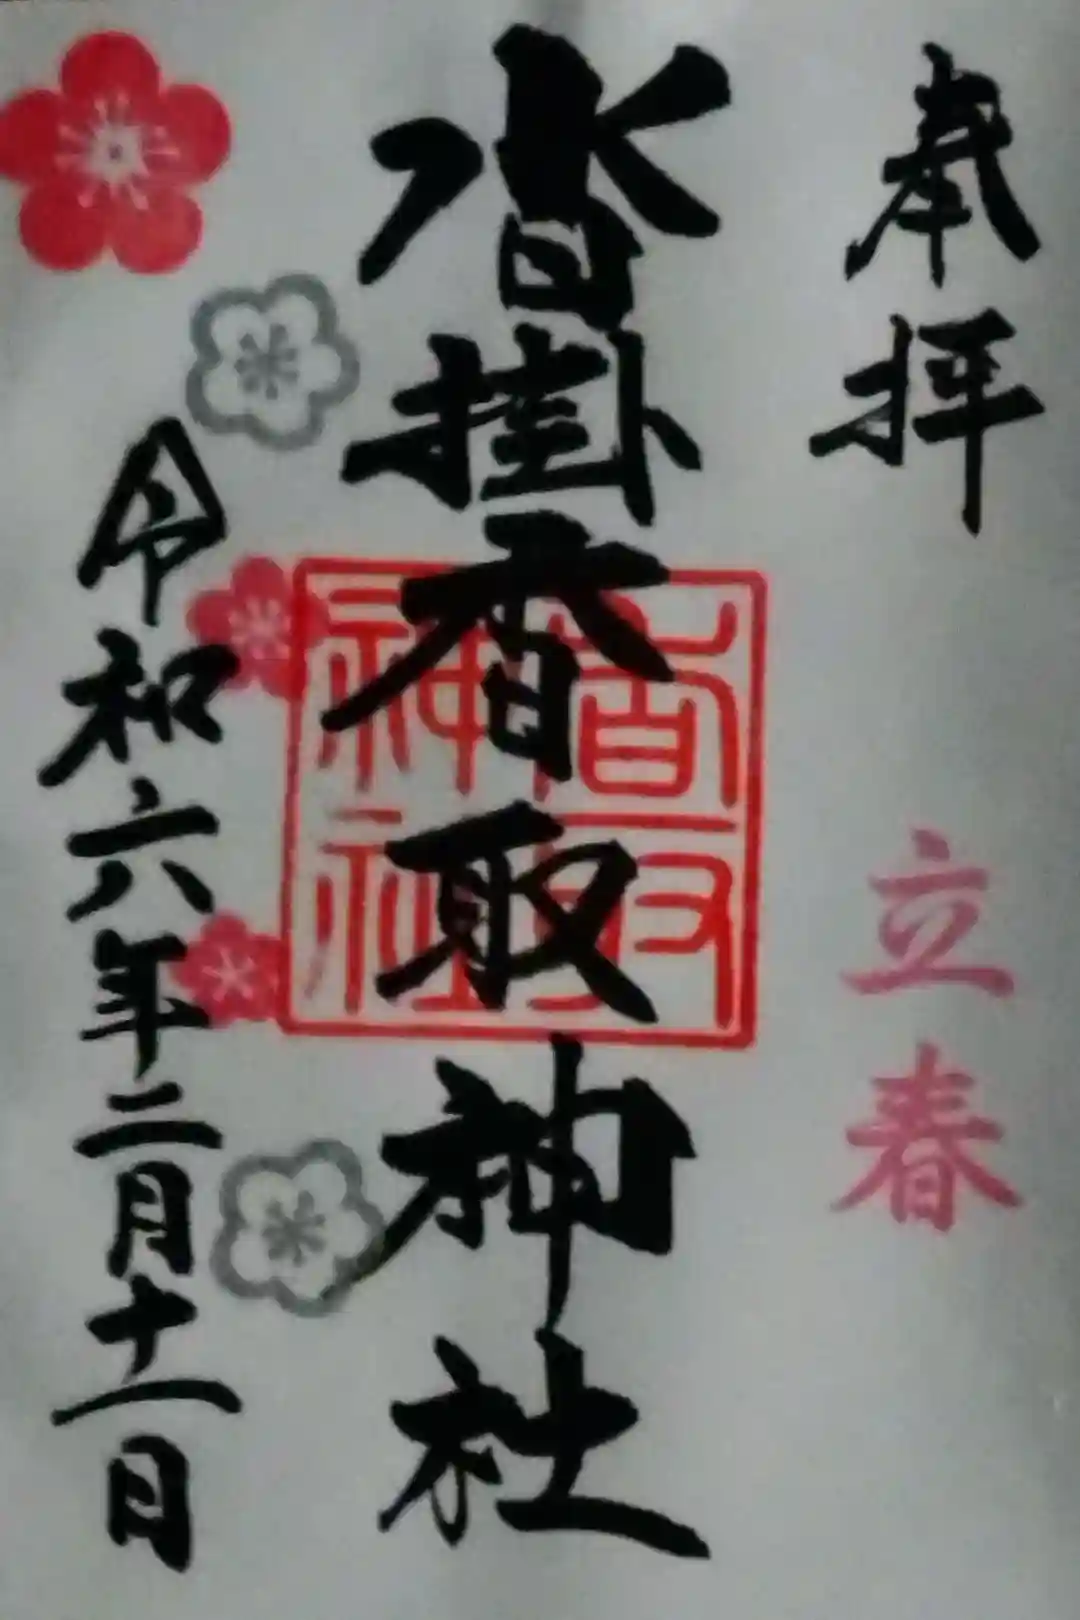 奉拝
立春
沓掛香取神社
香取神社
令和六年二月十一日